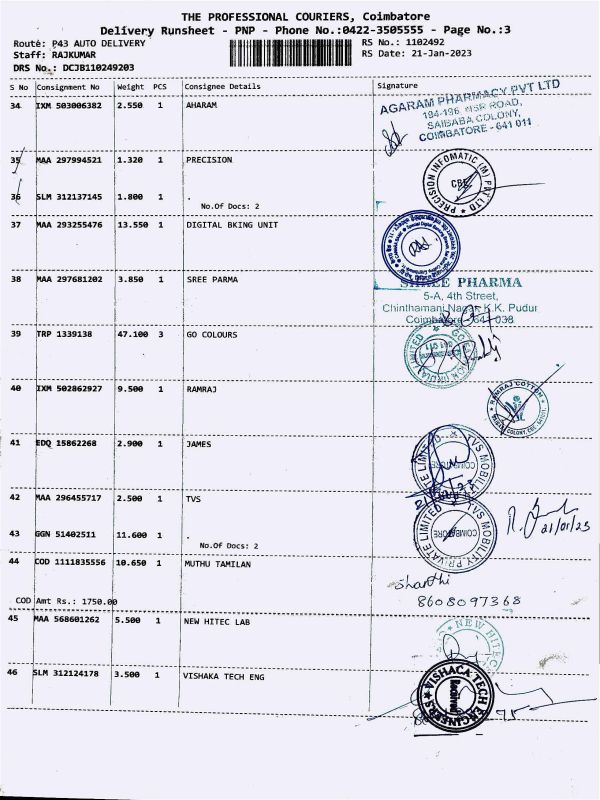 THE PROFESSIONAL COURIERS, Coimbatore
Delivery Runsheet - PNP - Phone No.:0422-3505555 - Page No.:3
Route: P43 AUTO DELIVERY RS No.: 1102492
Staff: RAJKUMAR RS Date: 21-Jan-2023
DRS No.: DCJB110249203
S No Consignment No Weight PCS Consignee Details Signature
34 IXM 503006382 2.550 1 AHARAM
AGARAM PHARMACY PVT LTD
194-196, NSR ROAD,
SAIBABA COLONY,
COIMBATORE - 641 011
35 MAA 297994521 1.320 1 PRECISION
PRECISION INFOMATIC (M) PVT LTD
CBE
36 SLM 312137145 1.800 1 .
No.Of Docs: 2
37 MAA 293255476 13.550 1 DIGITAL BKING UNIT
38 MAA 297681202 3.850 1 SREE PARMA
SHREE PHARMA
5-A, 4th Street,
Chinthamani Nagar, K.K. Pudur
Coimbatore - 641 038
39 TRP 1339138 47.100 3 GO COLOURS
40 IXM 502862927 9.500 1 RAMRAJ
RAMRAJ COTTON
41 EDQ 15862268 2.900 1 JAMES
TVS MOBILITY PRIVATE LIMITED
COIMBATORE
42 MAA 296455717 2.500 1 TVS
TVS MOBILITY PRIVATE LIMITED
COIMBATORE
21/01/23
43 GGN 51402511 11.600 1 .
No.Of Docs: 2
44 COD 1111835556 10.650 1 MUTHU TAMILAN
Sharthi
8608097368
COD Amt Rs.: 1750.00
45 MAA 568601262 5.500 1 NEW HITEC LAB
NEW HITEC
46 SLM 312124178 3.500 1 VISHAKA TECH ENG
VISHACA TECH ENGINEERS